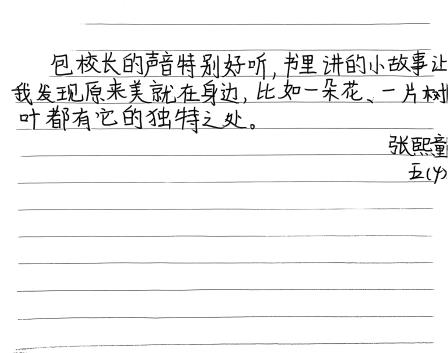 包校长的声音特别好听,书里讲的小故事让
我发现原来美就在身边,比如一朵花、一片树
叶都有它的独特之处。
张熙童
五(4)